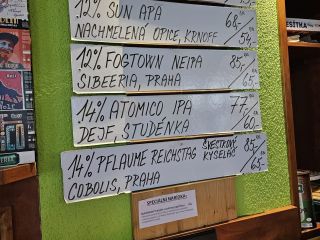 12% SUN APA
NACHMELENÁ OPICE, KRNOV
68,-
/54,-
12% FOGTOWN NEIPA
SIBEERIA, PRAHA
85,-
/65,-
14% ATOMICO IPA
DEJF, STUDÉNKA
77,-
/60,-
14% PFLAUME REICHSTAG ŠVESTKOVÝ KYSELÁČ
COBOLIS, PRAHA
85,-
/65,-
SPECIÁLNÍ NABÍDKA: